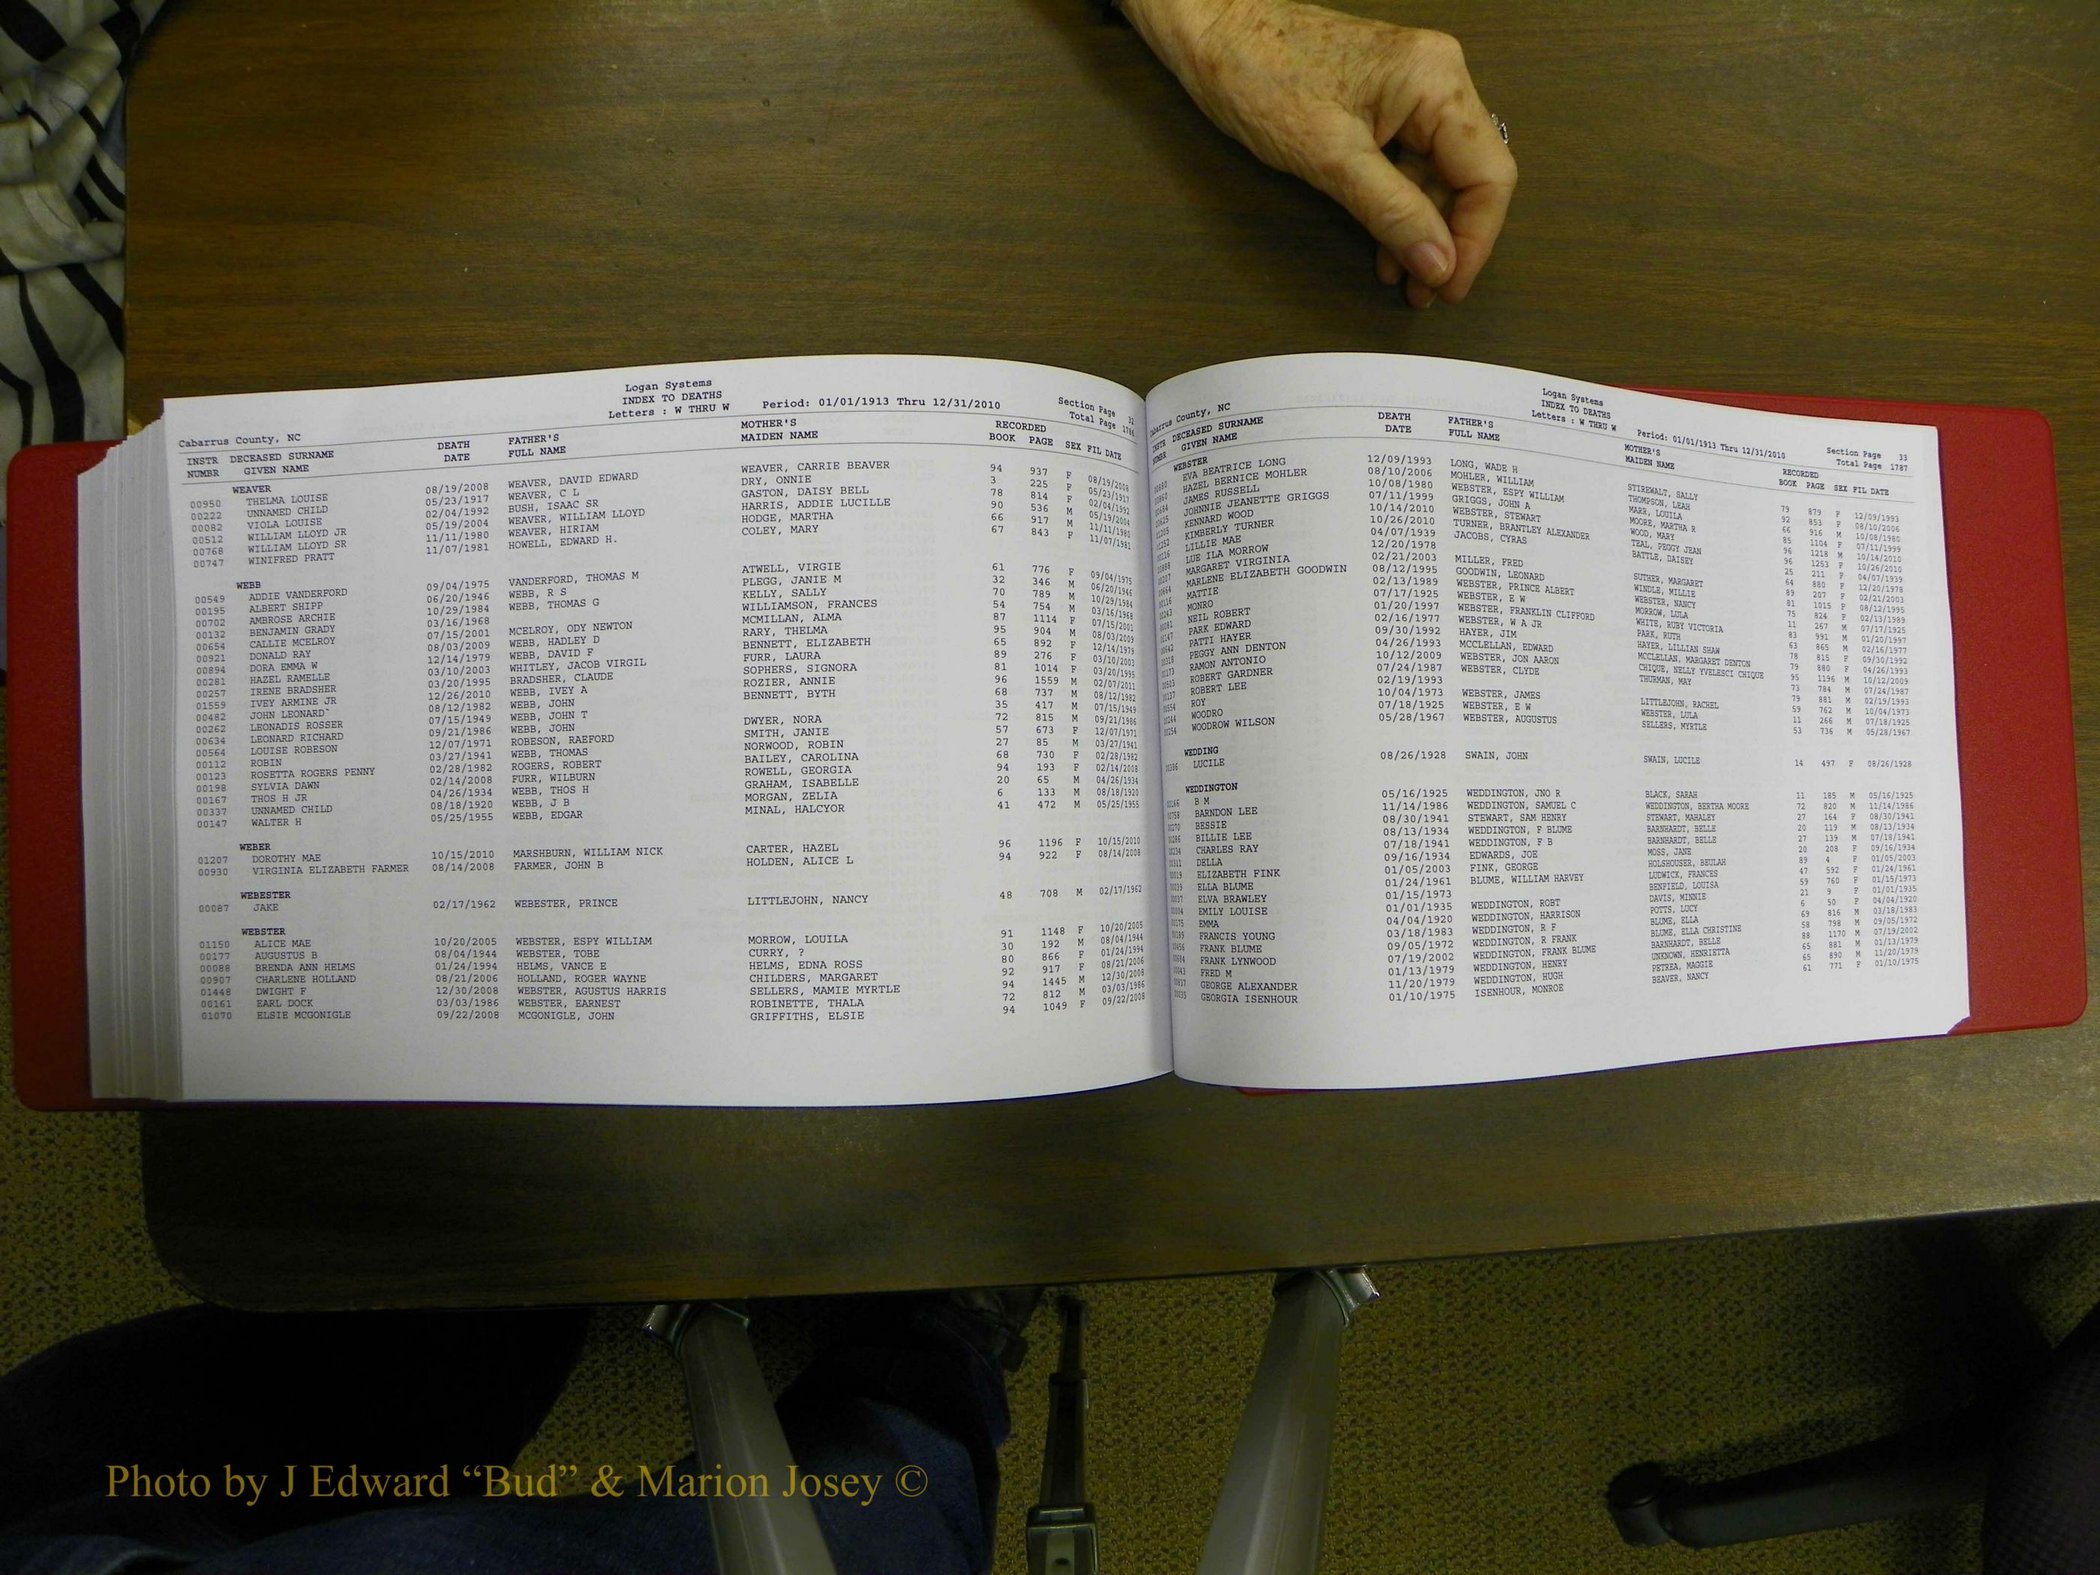 Logan Systems
INDEX TO DEATHS
Letters : W THRU W Period: 01/01/1913 Thru 12/31/2010
Section Page 32
Total Page 1786
Cabarrus County, NC
INSTR DECEASED SURNAME DEATH FATHER'S MOTHER'S RECORDED
NUMBR GIVEN NAME DATE FULL NAME MAIDEN NAME BOOK PAGE SEX FIL DATE
WEAVER
00950 THELMA LOUISE 08/19/2008 WEAVER, DAVID EDWARD WEAVER, CARRIE BEAVER 94 937 F 08/19/2008
00222 UNNAMED CHILD 05/23/1917 WEAVER, C L DRY, ONNIE 3 225 F 05/23/1917
00082 VIOLA LOUISE 02/04/1992 BUSH, ISAAC SR GASTON, DAISY BELL 78 814 F 02/04/1992
00512 WILLIAM LLOYD JR 05/19/2004 WEAVER, WILLIAM LLOYD HARRIS, ADDIE LUCILLE 90 536 M 05/19/2004
00768 WILLIAM LLOYD SR 11/11/1980 WEAVER, HIRIAM HODGE, MARTHA 66 917 M 11/11/1980
00747 WINIFRED PRATT 11/07/1981 HOWELL, EDWARD H. COLEY, MARY 67 843 F 11/07/1981
WEBB
00549 ADDIE VANDERFORD 09/04/1975 VANDERFORD, THOMAS M ATWELL, VIRGIE 61 776 F 09/04/1975
00195 ALBERT SHIPP 06/20/1946 WEBB, R S PLEGG, JANIE M 32 346 M 06/20/1946
00702 AMBROSE ARCHIE 10/29/1984 WEBB, THOMAS G KELLY, SALLY 70 789 M 10/29/1984
00132 BENJAMIN GRADY 03/16/1968 WILLIAMSON, FRANCES 54 754 M 03/16/1968
00654 CALLIE MCELROY 07/15/2001 MCELROY, ODY NEWTON MCMILLAN, ALMA 87 1114 F 07/15/2001
00921 DONALD RAY 08/03/2009 WEBB, HADLEY D RARY, THELMA 95 904 M 08/03/2009
00894 DORA EMMA W 12/14/1979 WEBB, DAVID F BENNETT, ELIZABETH 65 892 F 12/14/1979
00281 HAZEL RAMELLE 03/10/2003 WHITLEY, JACOB VIRGIL FURR, LAURA 89 276 F 03/10/2003
00257 IRENE BRADSHER 03/20/1995 BRADSHER, CLAUDE SOPHERS, SIGNORA 81 1014 F 03/20/1995
01559 IVEY ARMINE JR 12/26/2010 WEBB, IVEY A ROZIER, ANNIE 96 1559 M 02/07/2011
00482 JOHN LEONARD` 08/12/1982 WEBB, JOHN BENNETT, BYTH 68 737 M 08/12/1982
00262 LEONADIS ROSSER 07/15/1949 WEBB, JOHN T 35 417 M 07/15/1949
00634 LEONARD RICHARD 09/21/1986 WEBB, JOHN DWYER, NORA 72 815 M 09/21/1986
00564 LOUISE ROBESON 12/07/1971 ROBESON, RAEFORD SMITH, JANIE 57 673 F 12/07/1971
00112 ROBIN 03/27/1941 WEBB, THOMAS NORWOOD, ROBIN 27 85 M 03/27/1941
00123 ROSETTA ROGERS PENNY 02/28/1982 ROGERS, ROBERT BAILEY, CAROLINA 68 730 F 02/28/1982
00198 SYLVIA DAWN 02/14/2008 FURR, WILBURN ROWELL, GEORGIA 94 193 F 02/14/2008
00167 THOS H JR 04/26/1934 WEBB, THOS H GRAHAM, ISABELLE 20 65 M 04/26/1934
00337 UNNAMED CHILD 08/18/1920 WEBB, J B MORGAN, ZELIA 6 133 M 08/18/1920
00147 WALTER H 05/25/1955 WEBB, EDGAR MINAL, HALCYOR 41 472 M 05/25/1955
WEBER
01207 DOROTHY MAE 10/15/2010 MARSHBURN, WILLIAM NICK CARTER, HAZEL 96 1196 F 10/15/2010
00930 VIRGINIA ELIZABETH FARMER 08/14/2008 FARMER, JOHN B HOLDEN, ALICE L 94 922 F 08/14/2008
WEBESTER
00087 JAKE 02/17/1962 WEBESTER, PRINCE LITTLEJOHN, NANCY 48 708 M 02/17/1962
WEBSTER
01150 ALICE MAE 10/20/2005 WEBSTER, ESPY WILLIAM MORROW, LOUILA 91 1148 F 10/20/2005
00177 AUGUSTUS B 08/04/1944 WEBSTER, TOBE CURRY, ? 30 192 M 08/04/1944
00088 BRENDA ANN HELMS 01/24/1994 HELMS, VANCE E HELMS, EDNA ROSS 80 866 F 01/24/1994
00907 CHARLENE HOLLAND 08/21/2006 HOLLAND, ROGER WAYNE CHILDERS, MARGARET 92 917 F 08/21/2006
01448 DWIGHT F 12/30/2008 WEBSTER, AGUSTUS HARRIS SELLERS, MAMIE MYRTLE 94 1445 M 12/30/2008
00161 EARL DOCK 03/03/1986 WEBSTER, EARNEST ROBINETTE, THALA 72 812 M 03/03/1986
01070 ELSIE MCGONIGLE 09/22/2008 MCGONIGLE, JOHN GRIFFITHS, ELSIE 94 1049 F 09/22/2008
Logan Systems
INDEX TO DEATHS
Letters : W THRU W Period: 01/01/1913 Thru 12/31/2010
Section Page 33
Total Page 1787
Cabarrus County, NC
INSTR DECEASED SURNAME DEATH FATHER'S MOTHER'S RECORDED
NUMBR GIVEN NAME DATE FULL NAME MAIDEN NAME BOOK PAGE SEX FIL DATE
WEBSTER
EVA BEATRICE LONG 12/09/1993 LONG, WADE H STIREWALT, SALLY 79 879 F 12/09/1993
HAZEL BERNICE MOHLER 08/10/2006 MOHLER, WILLIAM THOMPSON, LEAH 92 853 F 08/10/2006
JAMES RUSSELL 10/08/1980 WEBSTER, ESPY WILLIAM MARR, LOUILA 66 916 M 10/08/1980
JOHNNIE JEANETTE GRIGGS 07/11/1999 GRIGGS, JOHN A MOORE, MARTHA R 85 1104 F 07/11/1999
KENNARD WOOD 10/14/2010 WEBSTER, STEWART WOOD, MARY 96 1218 M 10/14/2010
KIMBERLY TURNER 10/26/2010 TURNER, BRANTLEY ALEXANDER TEAL, PEGGY JEAN 96 1253 F 10/26/2010
LILLIE MAE 04/07/1939 JACOBS, CYRAS BATTLE, DAISEY 25 211 F 04/07/1939
LUE ILA MORROW 12/20/1978 64 880 F 12/20/1978
MARGARET VIRGINIA 02/21/2003 MILLER, FRED SUTHER, MARGARET 89 207 F 02/21/2003
MARLENE ELIZABETH GOODWIN 08/12/1995 GOODWIN, LEONARD WINDLE, MILLIE 81 1015 F 08/12/1995
MATTIE 02/13/1989 WEBSTER, PRINCE ALBERT WEBSTER, NANCY 75 824 F 02/13/1989
MONRO 07/17/1925 WEBSTER, E W MORROW, LULA 11 267 M 07/17/1925
NEIL ROBERT 01/20/1997 WEBSTER, FRANKLIN CLIFFORD WHITE, RUBY VICTORIA 83 991 M 01/20/1997
PARK EDWARD 02/16/1977 WEBSTER, W A JR PARK, RUTH 63 865 M 02/16/1977
PATTI HAYER 09/30/1992 HAYER, JIM HAYER, LILLIAN SHAW 78 815 F 09/30/1992
PEGGY ANN DENTON 04/26/1993 MCCLELLAN, EDWARD MCCLELLAN, MARGARET DENTON 79 880 F 04/26/1993
RAMON ANTONIO 10/12/2009 WEBSTER, JON AARON CHIQUE, NELLY YVELESCI CHIQUE 95 1196 M 10/12/2009
ROBERT GARDNER 07/24/1987 WEBSTER, CLYDE THURMAN, MAY 73 784 M 07/24/1987
ROBERT LEE 02/19/1993 79 881 M 02/19/1993
ROY 10/04/1973 WEBSTER, JAMES LITTLEJOHN, RACHEL 59 762 M 10/04/1973
WOODRO 07/18/1925 WEBSTER, E W WEBSTER, LULA 11 266 M 07/18/1925
WOODROW WILSON 05/28/1967 WEBSTER, AUGUSTUS SELLERS, MYRTLE 53 736 M 05/28/1967
WEDDING
LUCILE 08/26/1928 SWAIN, JOHN SWAIN, LUCILE 14 497 F 08/26/1928
WEDDINGTON
B M 05/16/1925 WEDDINGTON, JNO R BLACK, SARAH 11 185 M 05/16/1925
BARNDON LEE 11/14/1986 WEDDINGTON, SAMUEL C WEDDINGTON, BERTHA MOORE 72 820 M 11/14/1986
BESSIE 08/30/1941 STEWART, SAM HENRY STEWART, MAHALEY 27 164 F 08/30/1941
BILLIE LEE 08/13/1934 WEDDINGTON, F BLUME BARNHARDT, BELLE 20 119 M 08/13/1934
CHARLES RAY 07/18/1941 WEDDINGTON, F B BARNHARDT, BELLE 27 139 M 07/18/1941
DELLA 09/16/1934 EDWARDS, JOE MOSS, JANE 20 208 F 09/16/1934
ELIZABETH FINK 01/05/2003 FINK, GEORGE HOLSHOUSER, BEULAH 89 4 F 01/05/2003
ELLA BLUME 01/24/1961 BLUME, WILLIAM HARVEY LUDWICK, FRANCES 47 592 F 01/24/1961
ELVA BRAWLEY 01/15/1973 BENFIELD, LOUISA 59 760 F 01/15/1973
EMILY LOUISE 01/01/1935 WEDDINGTON, ROBT DAVIS, MINNIE 21 9 F 01/01/1935
EMMA 04/04/1920 WEDDINGTON, HARRISON POTTS, LUCY 6 50 F 04/04/1920
FRANCIS YOUNG 03/18/1983 WEDDINGTON, R F BLUME, ELLA 69 816 M 03/18/1983
FRANK BLUME 09/05/1972 WEDDINGTON, R FRANK BLUME, ELLA CHRISTINE 58 798 M 09/05/1972
FRANK LYNWOOD 07/19/2002 WEDDINGTON, FRANK BLUME BARNHARDT, BELLE 88 1170 M 07/19/2002
FRED M 01/13/1979 WEDDINGTON, HENRY UNKNOWN, HENRIETTA 65 881 M 01/13/1979
GEORGE ALEXANDER 11/20/1979 WEDDINGTON, HUGH PETREA, MAGGIE 65 890 M 11/20/1979
GEORGIA ISENHOUR 01/10/1975 ISENHOUR, MONROE BEAVER, NANCY 61 771 F 01/10/1975
Photo by J Edward “Bud” & Marion Josey ©